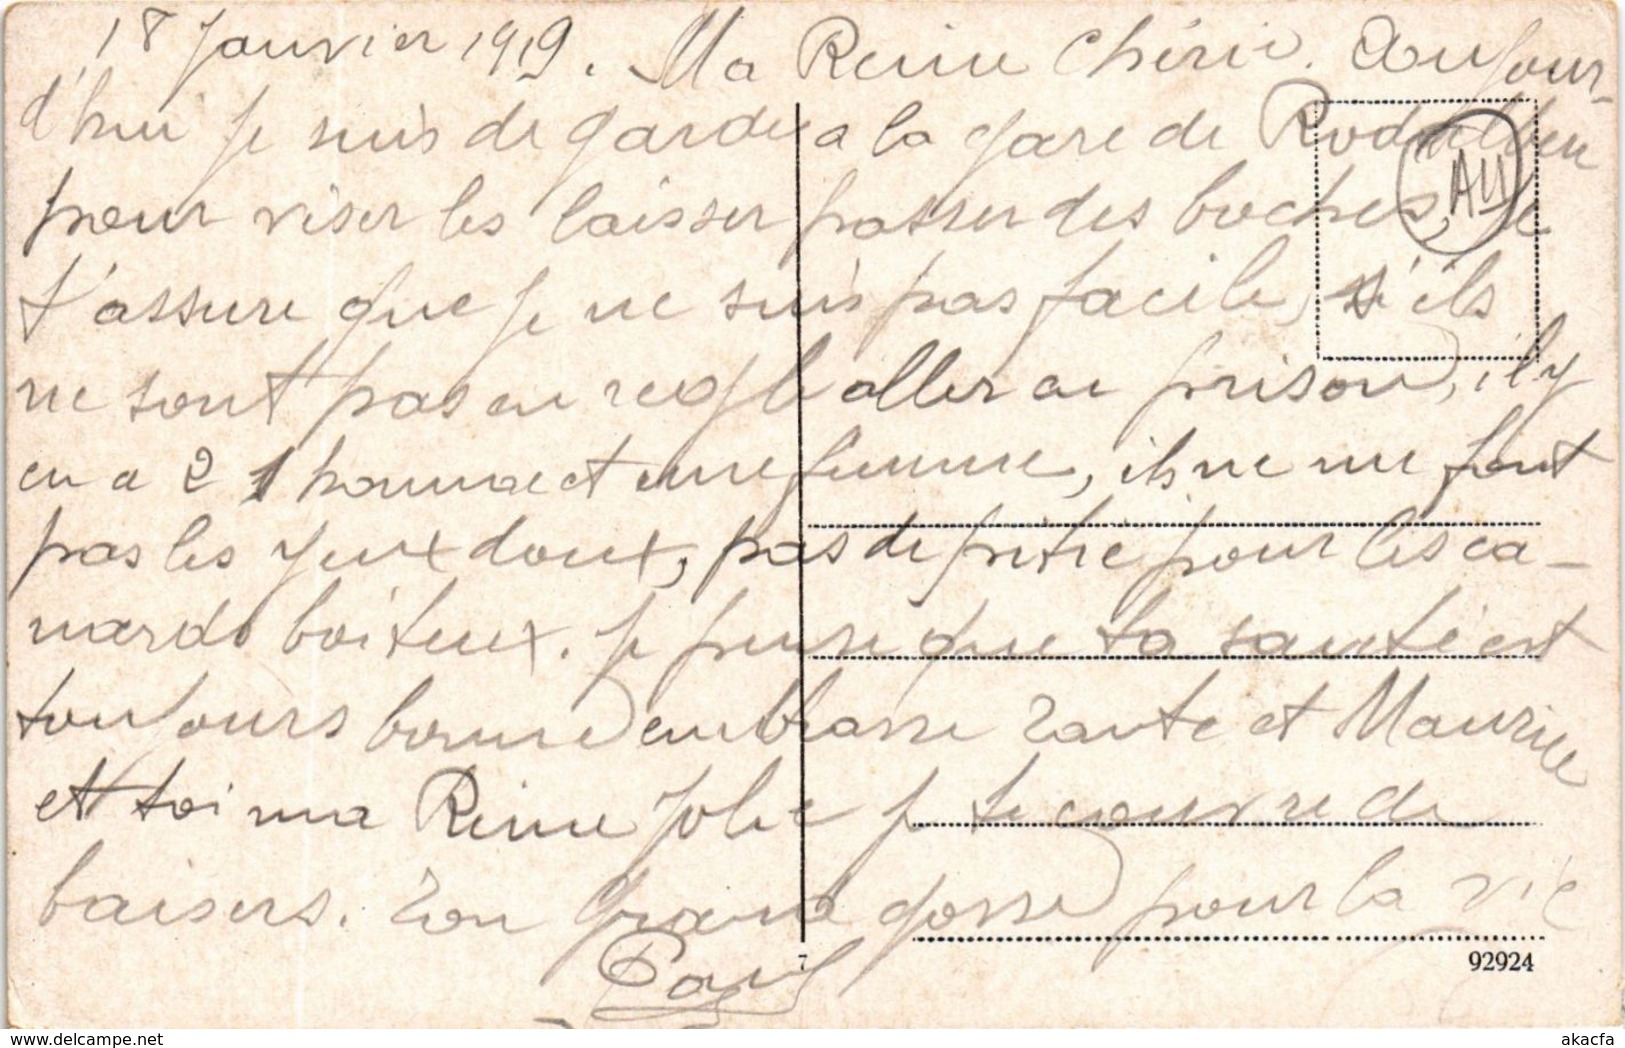 18 Janvier 1919. Ma Reine Chérie. Aujour-
d'hui je suis de garde a la gare de Rodalben
pour viser les laisser passer des boches, je
t'assure que je ne suis pas facile, s'ils
ne sont pas en regle aller en prison, il y
en a 2 1 homme et une femme, ils ne me font
pas les yeux doux, pas de pitié pour les ca-
nards boiteux. Je pense que ta santé est
toujours bonne embrasse Tante et Maurice
et toi ma Reine Jolie je te couvre de
baisers. Ton grand gosse pour la vie
Paul
AU
7
92924
akacfa